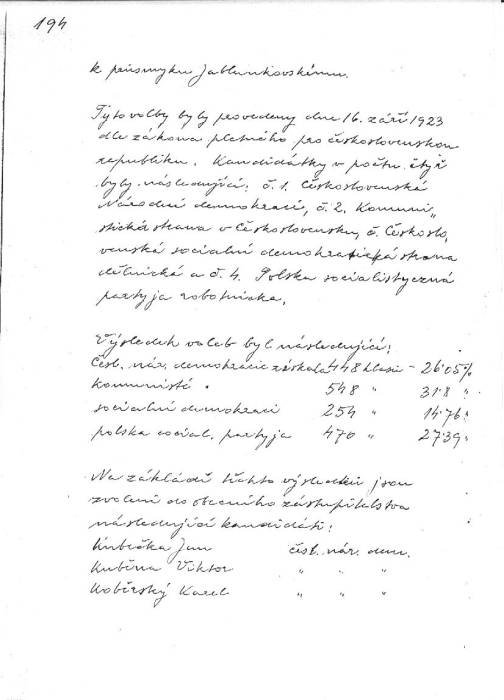 194
k průsmyku Jablunkovskému.
Tyto volby byly provedeny dne 16. září 1923
dle zákona platného pro československou
republiku. Kandidátky v počtu čtyř
byly následující: č. 1. Československá
Národní demokracie, č. 2. Komuni„
stická strana v Československu, č. Českoslo„
venská sociální demokratická strana
dělnická a č. 4. Polska socialistyczna
partyja robotnicka.
Výsledek voleb byl následující:
Čsl. nár. demokracie získala 448 hlasů - 26·05%
komunisté „ 548 „ 31·8 „
sociální demokraci 254 „ 14·76 „
polska social. partyja 470 „ 27·39 „
Na základě těchto výsledků jsou
zvoleni do obecního zastupitelstva
následující kandidáti:
Kubečka Jan čsl. nár. dem.
Kubina Viktor „ „ „
Koběrský Karel „ „ „